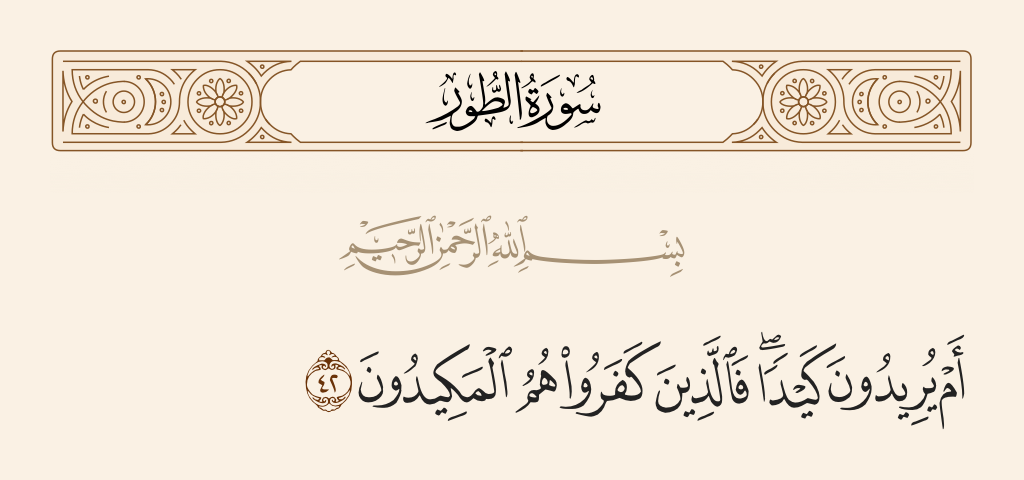 سُورَةُ الطُّورِ
بِسْمِ ٱللَّهِ ٱلرَّحْمَٰنِ ٱلرَّحِيمِ
أَمْ يُرِيدُونَ كَيْدًا ۖ فَٱلَّذِينَ كَفَرُوا۟ هُمُ ٱلْمَكِيدُونَ ٤٢